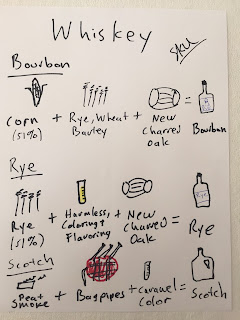 Whiskey
Bourbon
Corn + Rye, Wheat + New = Bourbon
(51%) Barley Charred
Oak
Rye
Rye + Harmless + New = Rye
(51%) Coloring + Charred
Flavoring Oak
Scotch
Peat + Bagpipes + Caramel = Scotch
Smoke Color